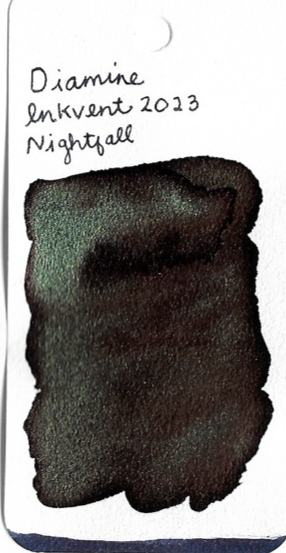 Diamine
Inkvent 2023
Nightfall